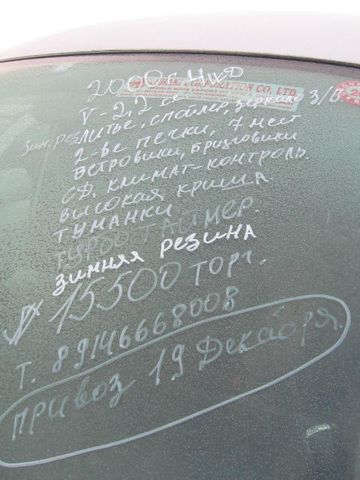 2000г. 4WD
CORPORATION CO., LTD.
V-2,2
литье, спойлер, зеркало з/в
2-ве печки, 7 мест
ветровики, брызговики
CD, климат-контроль.
высокая крыша
туманки
турботаймер.
зимняя резина
15500 торг.
т. 89146668008
привоз 19 декабря.